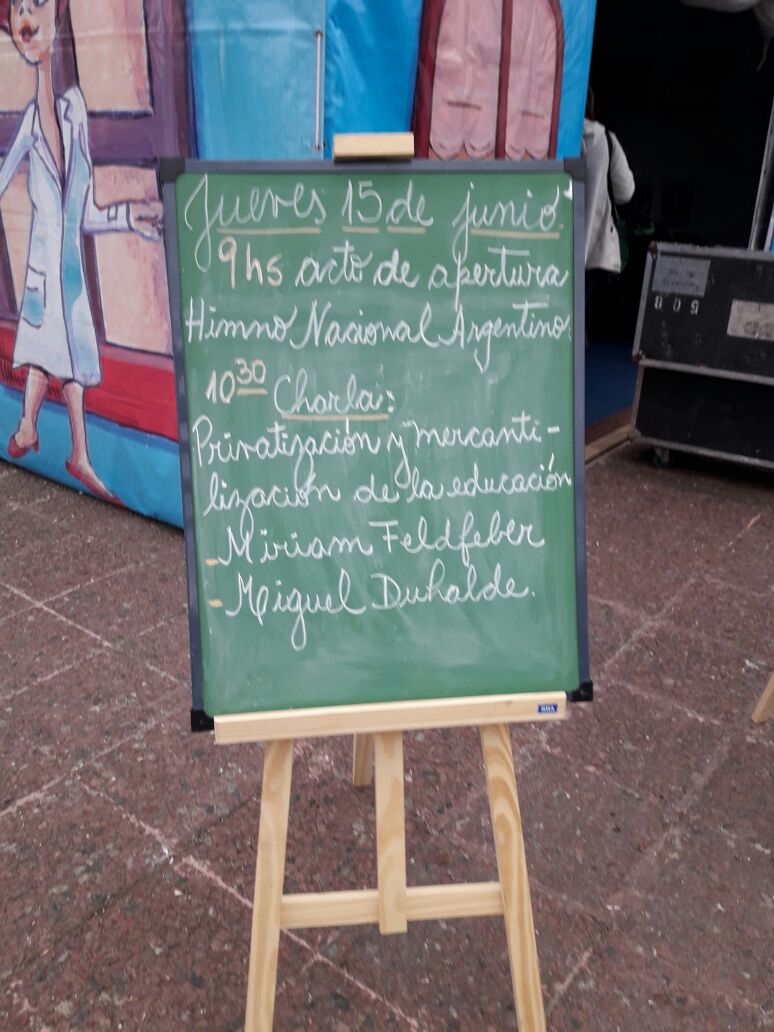 Jueves 15 de junio.
9hs acto de apertura
Himno Nacional Argentino.
10³⁰ Charla:
Privatización y mercanti-
lización de la educación
- Miriam Feldfeber
- Miguel Duhalde.